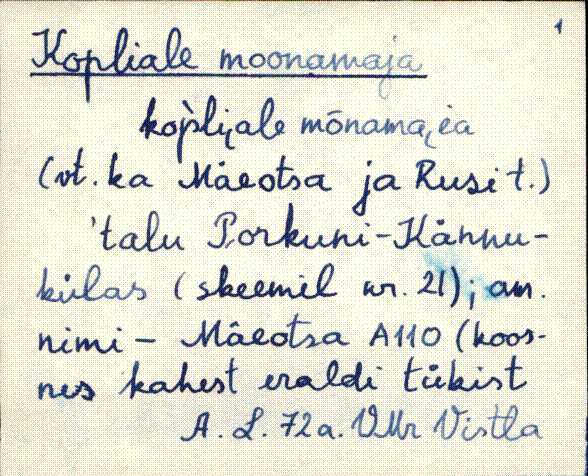 1
Kopliale moonamaja
koplịale mōnamaịa
(vt. ka Mäeotsa ja Rusi t.)
'talu Porkuni-Kännu-
külas (skeemil nr. 21); am.
nimi – Mäeotsa A110 (koos-
nes kahest eraldi tükist
A. L. 72a. VMr Vistla